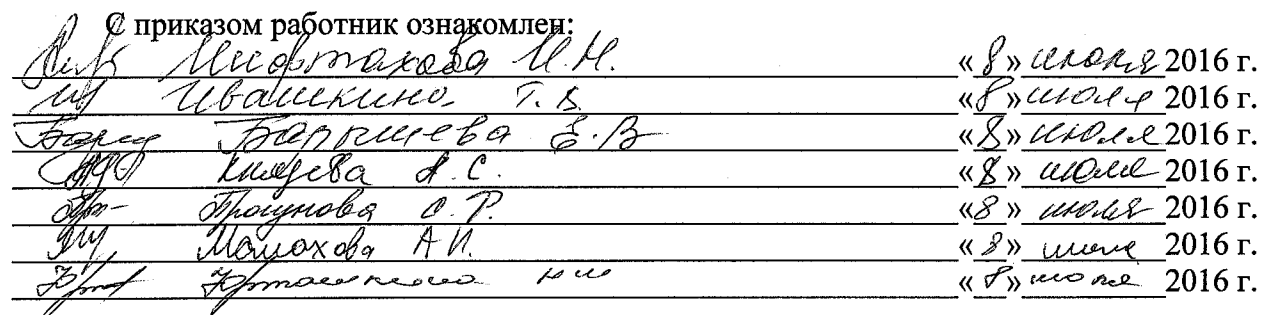 С приказом работник ознакомлен:
Мифтахова И.Н. «8» июля 2016 г.
Ивашкина Т.В. «8» июля 2016 г.
Барышева Е.В «8» июля 2016 г.
Князева А.С. «8» июля 2016 г.
С.Р. «8» июля 2016 г.
Малахова А И. «8» июля 2016 г.
«8» июля 2016 г.